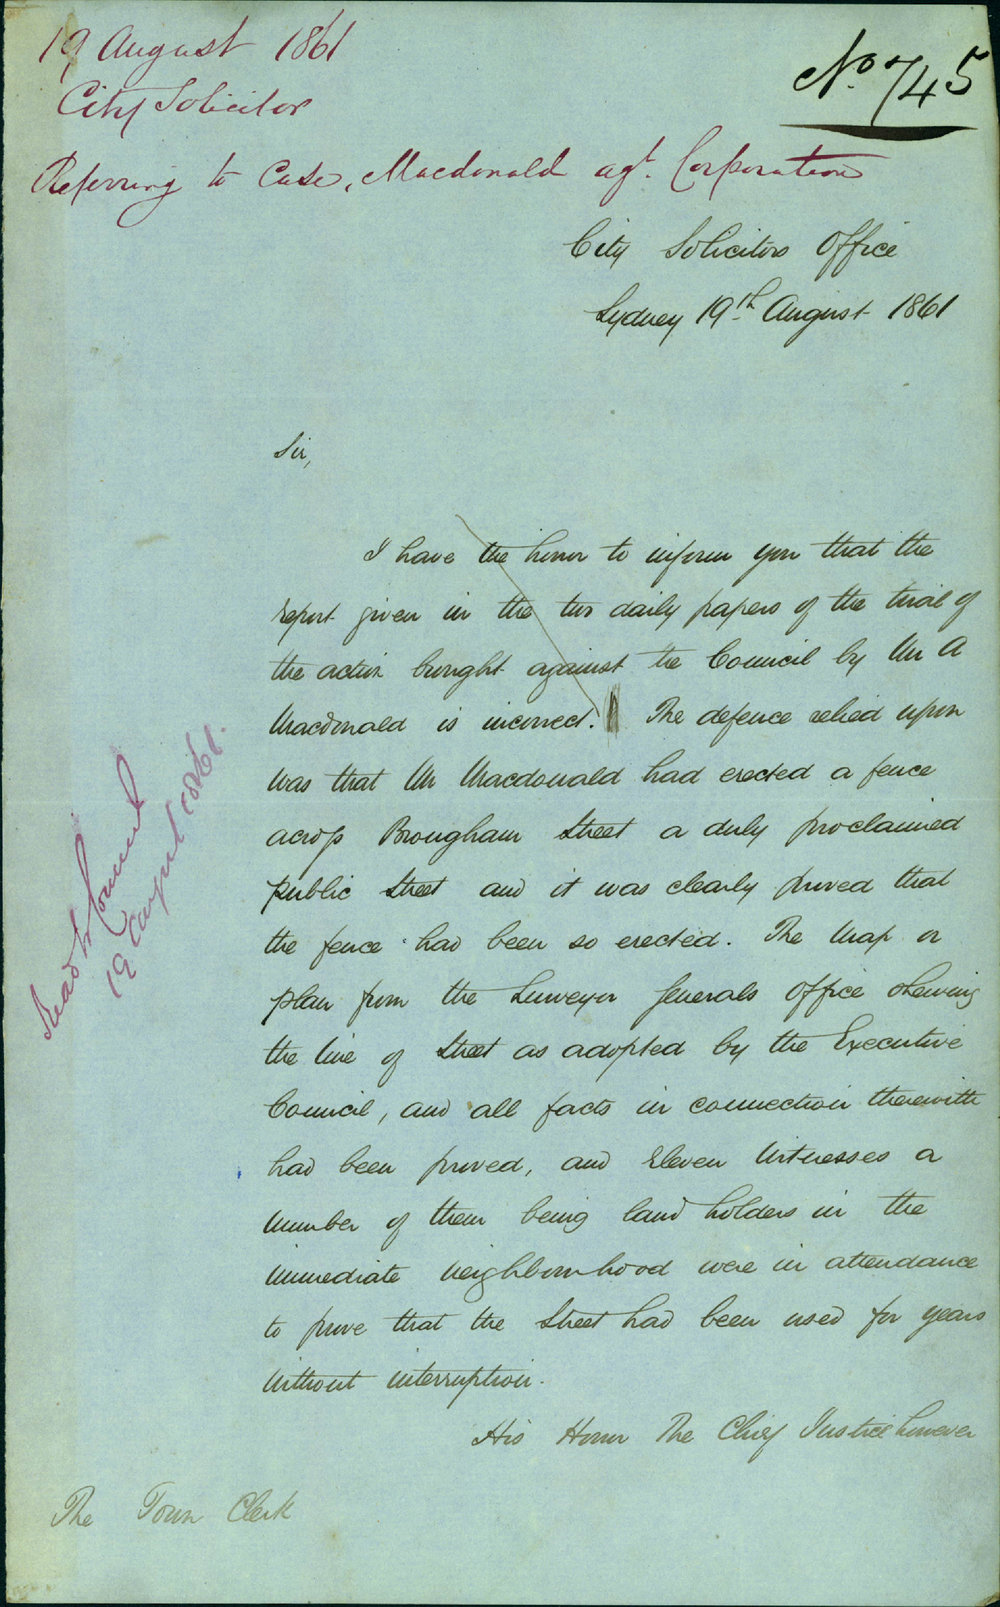 19 August 1861
City Solicitor
Referring to Case, Macdonald agt. Corporation
No. 745
City Solicitors Office
Sydney 19th August 1861
Sir,
I have the honor to inform you that the
report given in the two daily papers of the trial of
the action brought against the Council by Mr A
Macdonald is incorrect. The defence relied upon
was that Mr Macdonald had erected a fence
across Brougham Street a duly proclaimed
public Street and it was clearly proved that
the fence had been so erected. The Map or
plan from the Surveyor Generals Office shewing
the line of Street as adopted by the Executive
Council, and all facts in connection therewith
had been proved, and Eleven Witnesses a
number of them being land holders in the
immediate neighbourhood were in attendance
to prove that the Street had been used for years
without interruption.
His Honor The Chief Justice however
The Town Clerk
Read in Council
19 August 1861.